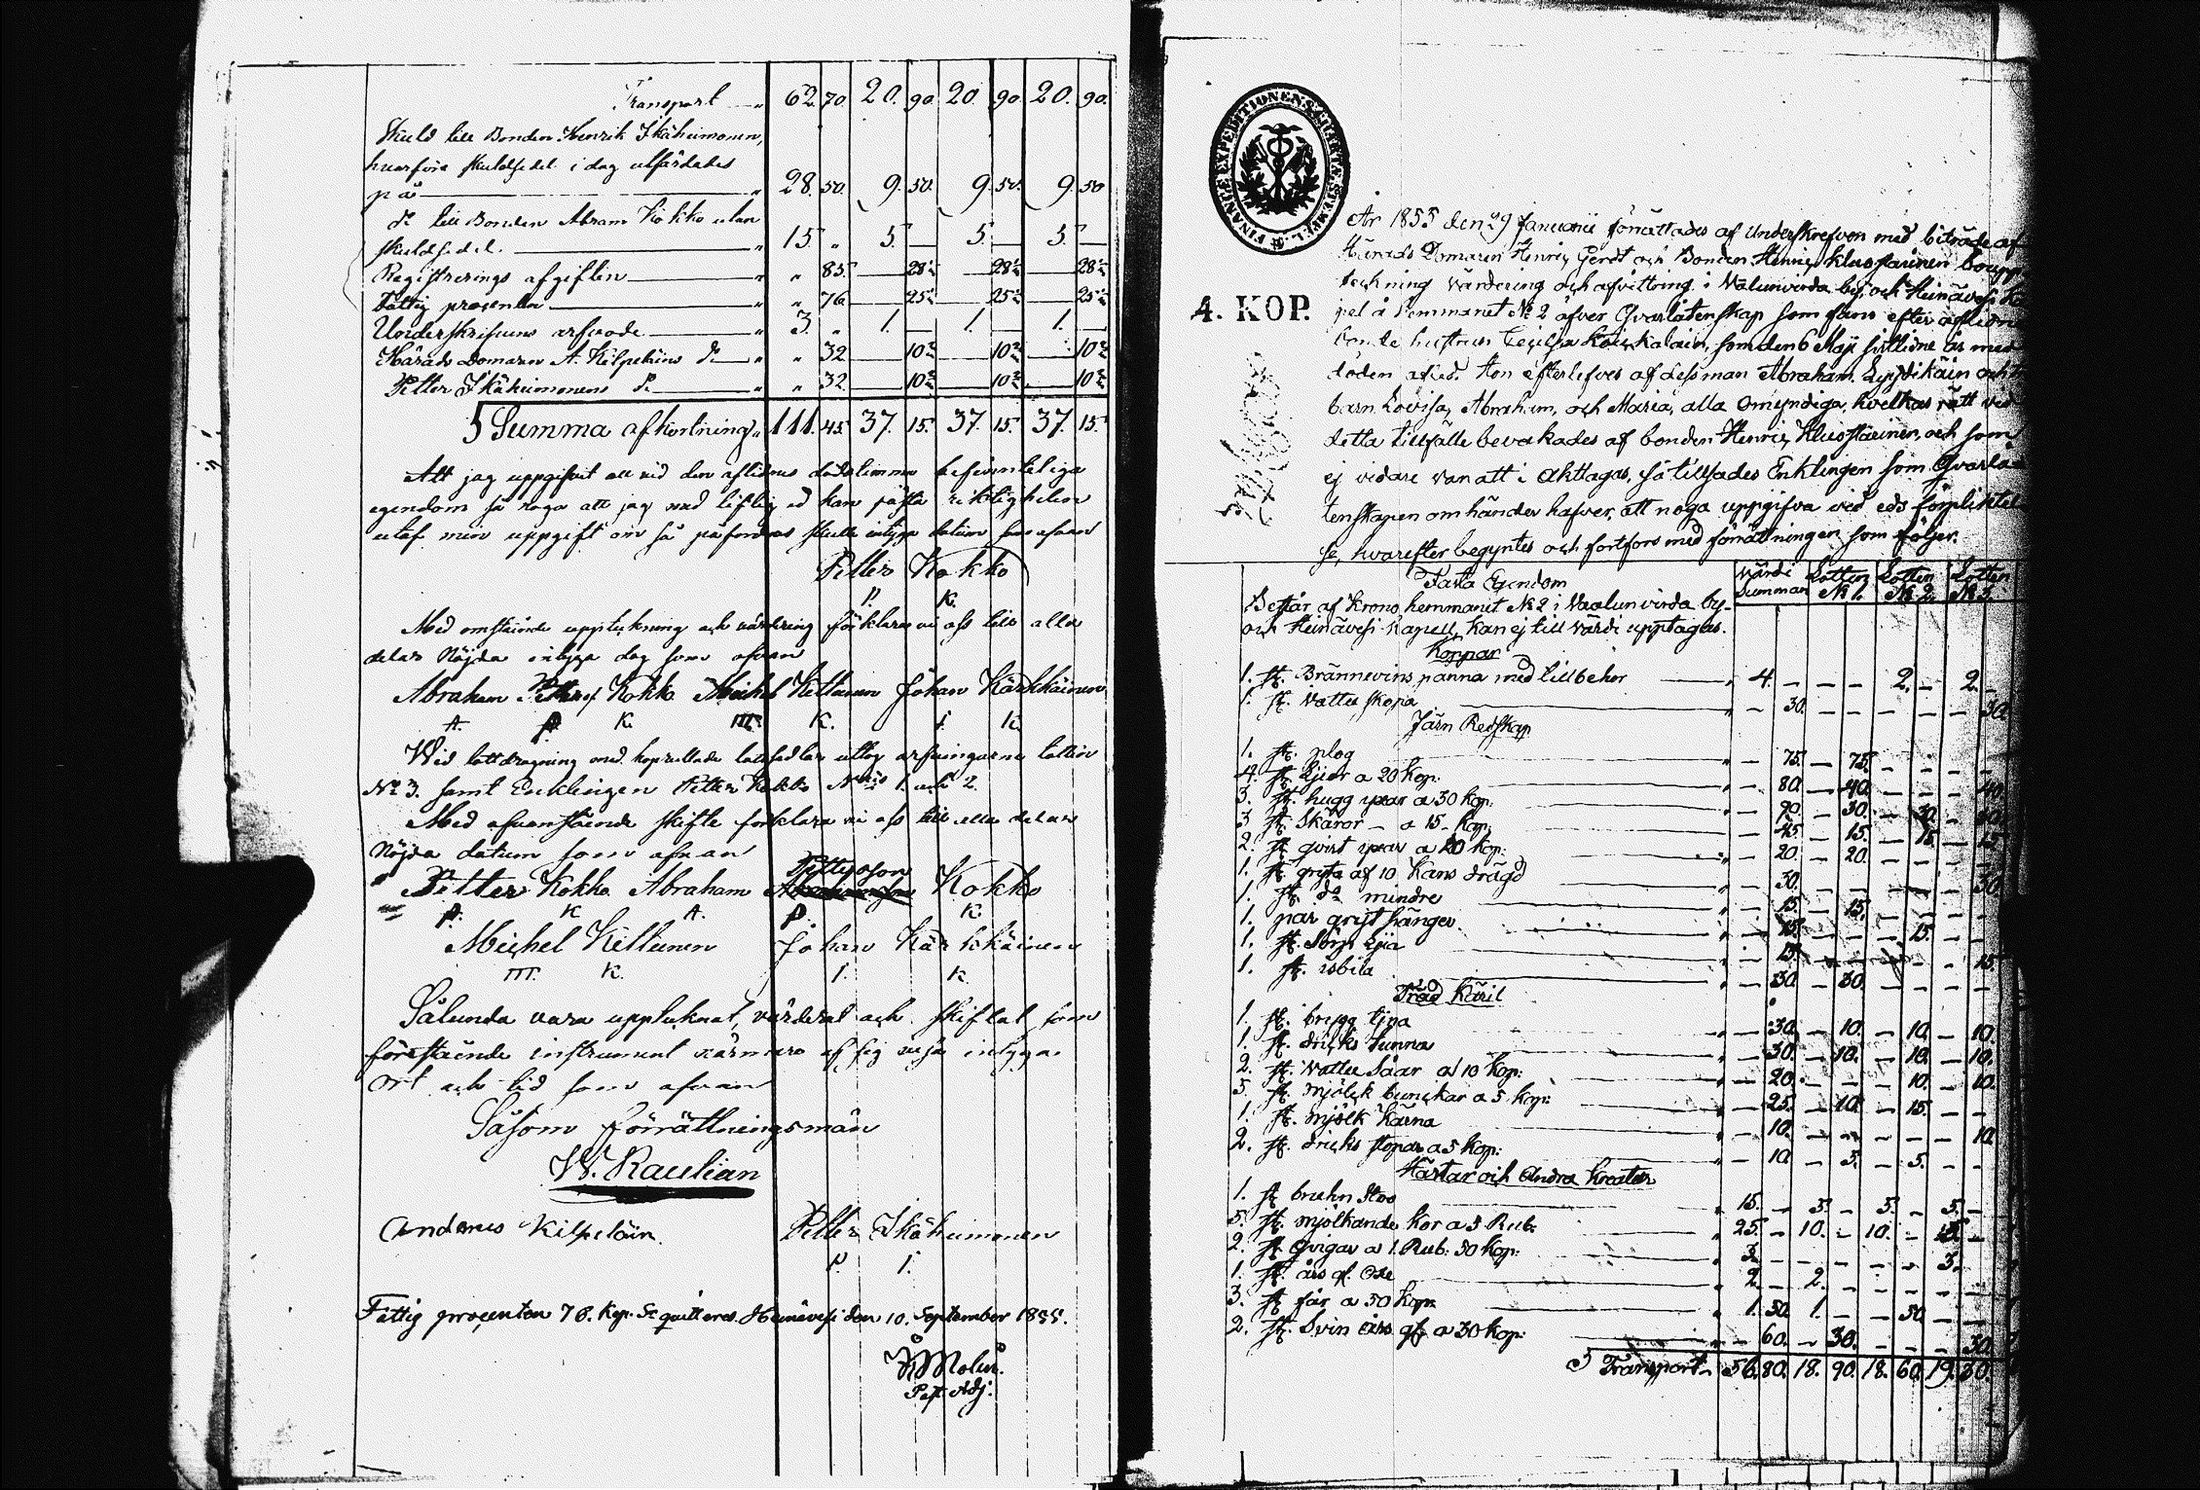 Transport „ 62. 70. 20. 90. 20. 90. 20. 90.
Skuld till Bonden Henrik Ikäheimonen,
hvarföre skuldsedel i dag utfärdades
på „ 28. 50. 9. 50. 9. 50. 9. 50
do till Bonden Abram Kokko utan
skuldsedel. „ 15. „ 5. — 5. — 5. —
Registrerings afgiften „ „ 85. — 28⅓ — 28⅓ — 28⅓
Fattig procenten „ „ 76 25⅓ 25⅓ 25⅓
Underskrifvens arfvode „ 3. „ 1. — 1. — 1. —
Härads Domaren A. Kilpeläins do „ „ 32 10⅔ 10⅔ 10⅔
Petter Ikäheimonens do „ „ 32. 10⅔ 10⅔ 10⅔
Summa afkortning „ 111. 45. 37. 15. 37. 15. 37. 15.
Att jag uppgifvit all vid den aflidnes dödstimma befinteliga
egendom så noga att jag med liflig ed kan fästa riktigheten
utaf min uppgift om så påfordras skulle intyga datum som ofvan
Petter Kokko
P. K.
Med omstående uppteckning och värdering förklara vi oss till alla
delar Nöjda intyga dag som ofvan
Abraham Kokko Michel Kettunen Johan Kärkkäinen
A. P. K. M. K. J. K.
Wid lottdragning med hoprullade lottsedlar uttog arfvingarne lotten
No 3. samt Enklingen Petter Kokko Nris 1. och 2.
Med ofvanstående skifte förklara vi oss till alla delar
Nöjda datum som ofvan
Pettersson
Petter Kokko Abraham Kokko
P. K A. P. K.
Michel Kettunen Johan Kärkkäinen
M. K. J. K.
Sålunda vara upptecknat, värderat och skiftat som
förestående instrument närmare af sig visa intyga.
Ort och tid som ofvan
Såsom förrättningsmän
W. Raulian
Anders Kilpeläin. Petter Ikäheimonen
P. I.
Fattig procenten 76. Kop. Sr quitteras. Heinävesi den 10. September 1855.
Molin.
Past. Adj:
FINANCE EXPEDITIONENS CHARTÆ STEMPEL
4. KOP.
År 1855 den 29 Januarii förrättades af Underskrefven med biträde af
Härads Domaren Henric Gerdt och Bonden Henric Kluostarinen boupp
teckning värdering och afvittring i Walunvirda by och Heinävesi Ka
pel å Hemmanet No 2 öfver Qvarlåtenskap som fans efter aflidne
bonde hustrun Koiskalain, som den 6 Maji sistlidne år med
döden afled. Hon efterlefves af dess man Abraham Lyydikäin och
barn Lovisa, Abraham, och Maria, alla omyndiga, hvilkas rätt ved
detta tillfälle bevakades af bonden Henric Kluostarinen, och som
ej vidare van att i akttagas, så tillsades Enklingen som Qvarlå-
tenskapen om händer hafver, att noga uppgifva ved eds förpliktel
se, hvarefter begyntes och fortfors med förrättningen som följer.
Fasta Egendom Värdi Summan Lotten N 1. Lotten N 2. Lotten N 3.
Består af Krono hemmanet N 2 i Waalunvirda by-
och Heinävesi Kapell, Kan ej till värdi upptagas.
Koppar
1. st. Brännevins panna med tillbehör „ 4. — — — 2. — 2. —
1. st. Vattu skopa „ — 30. — — — — — 30.
Järn Redskap
1. st. plog „ — 75. — 75. — — — —
4. st. Lijor a 20 kop: „ — 80. — 40. — — — 40.
3. st. hugg yxar a 30 kop: „ — 90. — 30. — 30. — 30.
3 st. Skäror — a 15. kop: „ — 45. — 15. — 15. — 15.
2. st. qvist yxar a 10 kop: „ — 20. — 20. — — — —
1. st. gryta af 10 Kans drägd „ — 30. — — — — — 30.
1. st. do mindre „ — 15. — 15. — — — —
1. par gryt hänger „ — 15. — — — 15. — —
1. st. Lija „ — 15. — — — — — 15.
1. st. isbila „ — 30. — 30. — — — —
Träd Käril
1. st. brygg tjna „ — 30. — 10. — 10. — 10.
1. st. dricks tunna „ — 30. — 10. — 10. — 10.
2. st. vattu Såar a 10 kop: „ — 20. — — — 10. — 10.
5. st. mjölck bunckar a 5 kop: „ — 25. — 10. — 15. — —
1. st. mjölk Kärna „ — 10. — — — — — 10.
2. st. dricks stopar a 5 kop: „ — 10. — 5. — 5. — —
Hästar och Andra Kreatur
1. st. bruhn Stoo „ 15. — 5. — 5. — 5. —
5. st. mjölkande Kor a 5 Rub. „ 25. — 10. — 10. — —
2. st. qvigar a 1. Rub: 50 kop: „ 3. — — — — — 3. —
1. st. års gl. Oxe „ 2. — 2. — — — — —
3. st. får a 50 kop: „ 1. 50. 1. — — 50. — —
2. st. Svin års gl. a 30 kop: „ — 60. — 30. — — — 30.
Transport „ 56. 80. 18. 90. 18. 60. 19. 30.